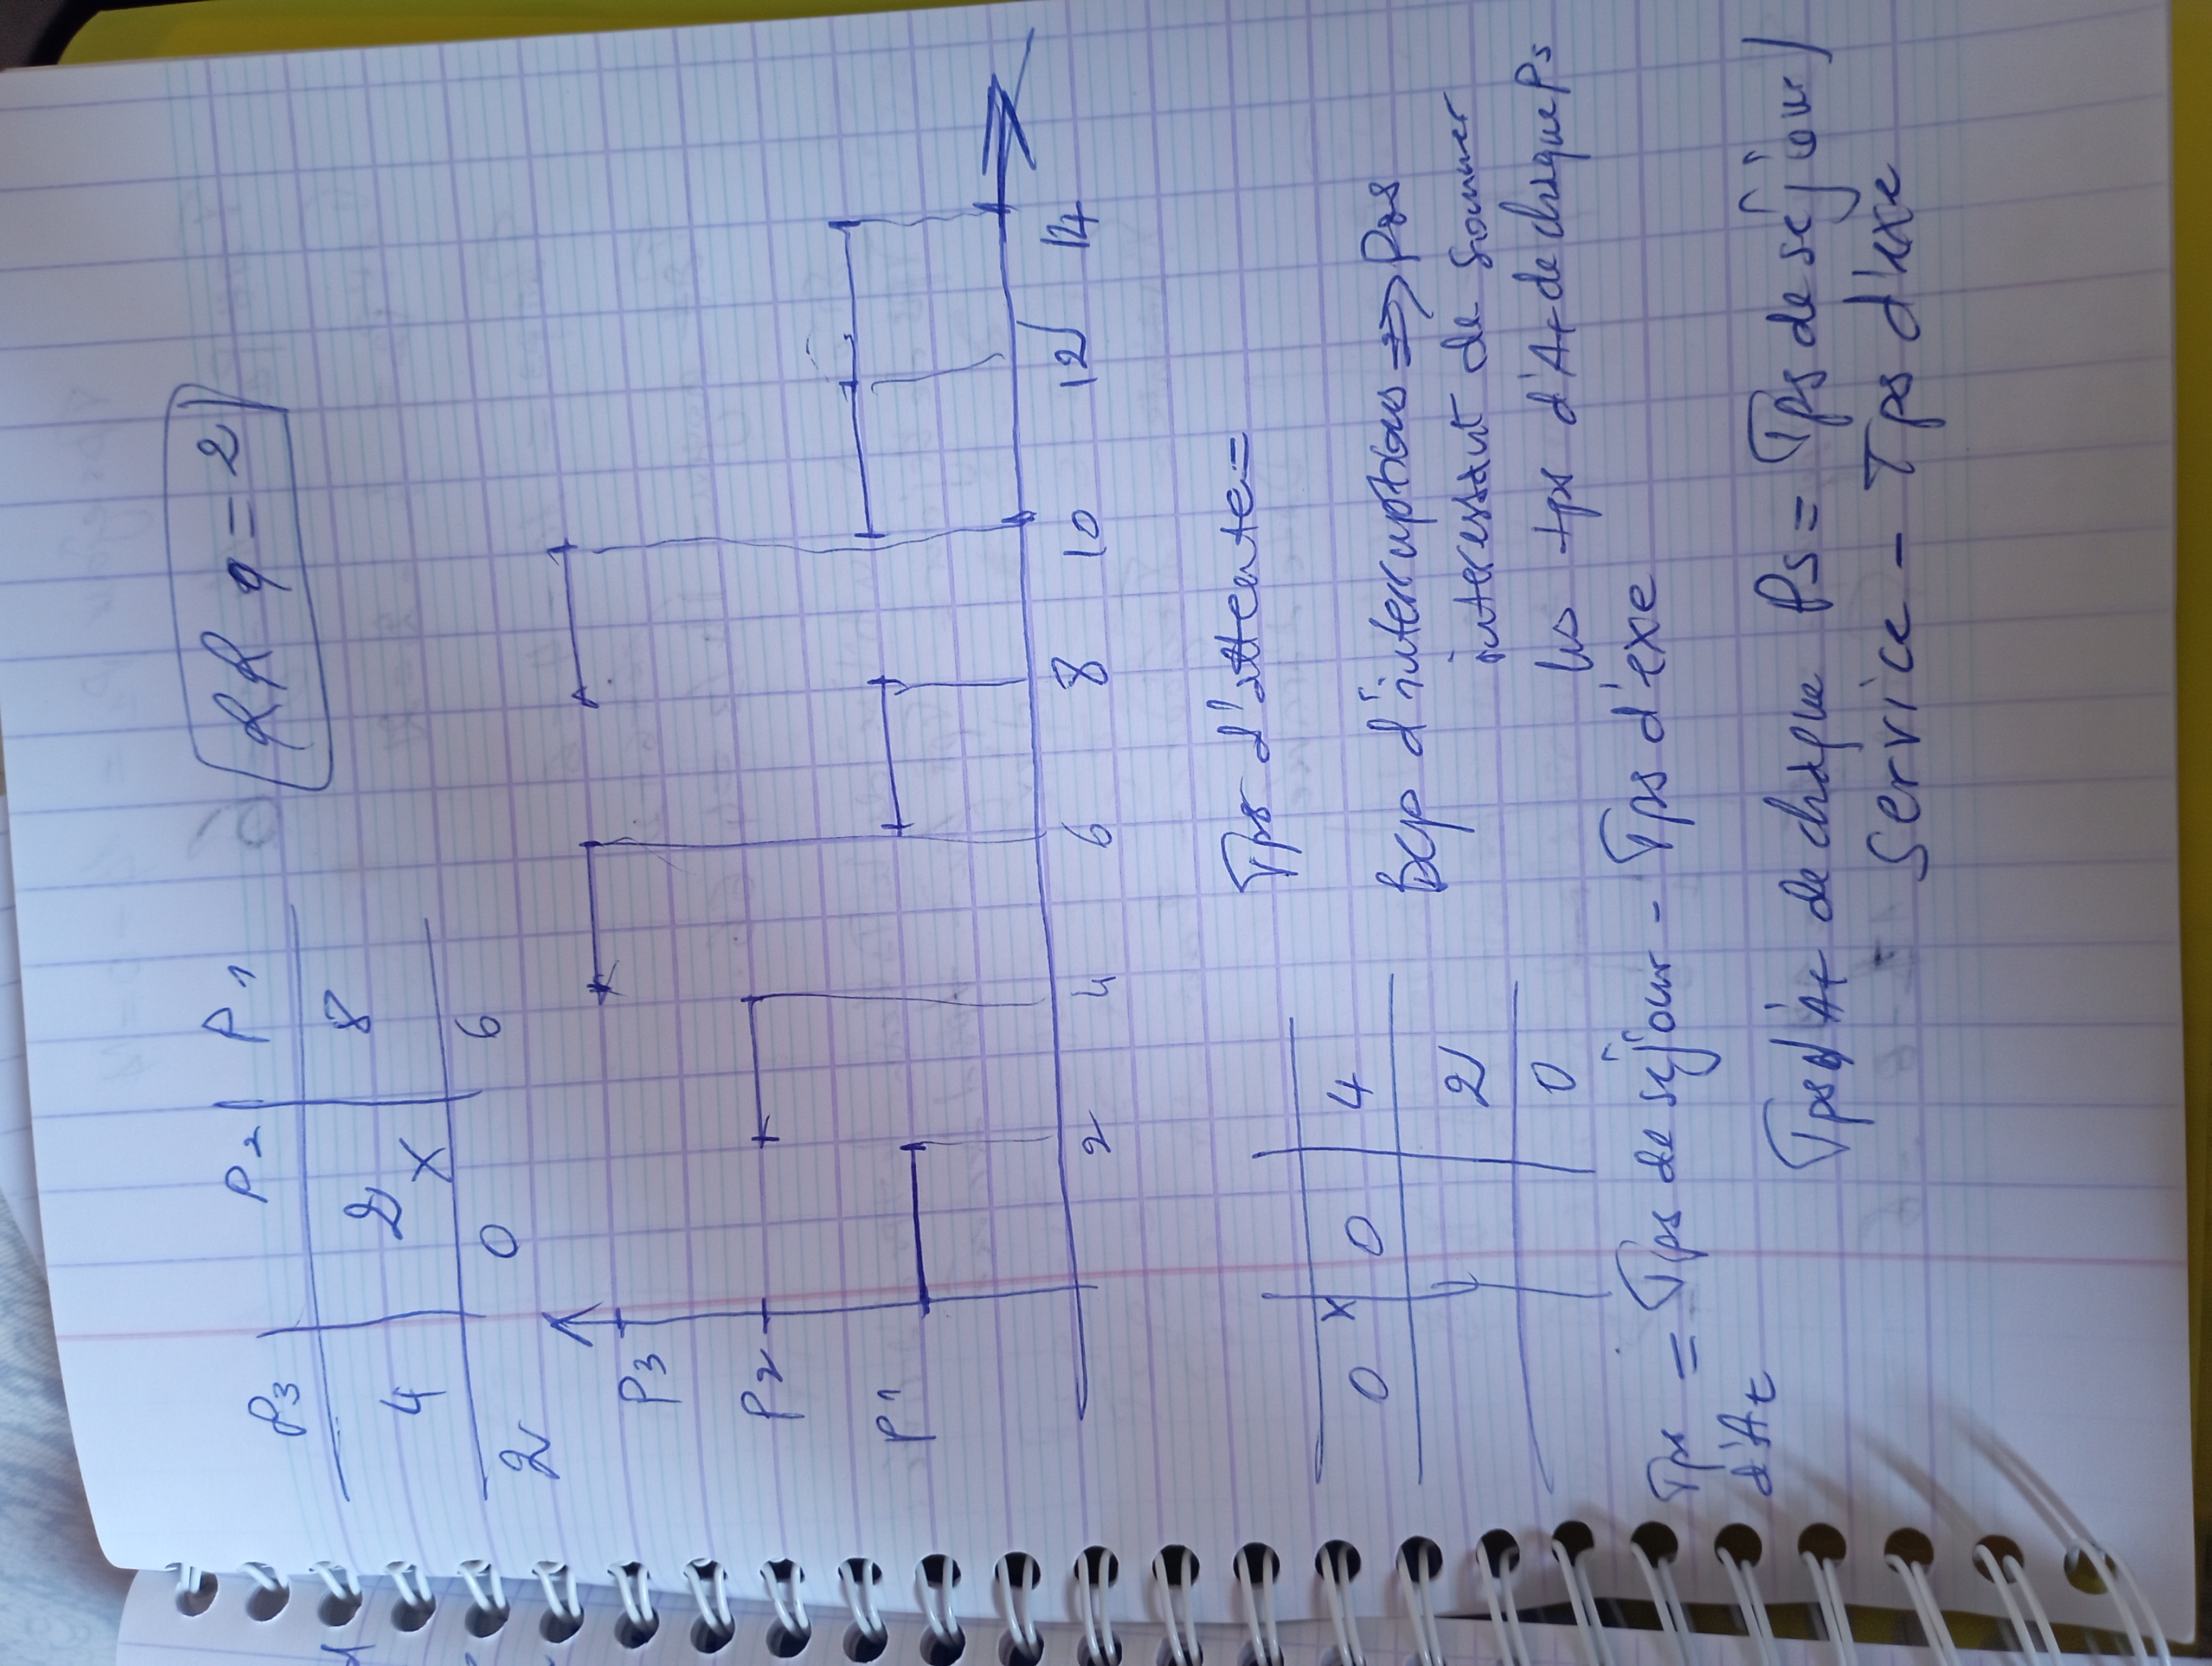 P3 P2 P1
RR q=2
4 2 X 8
2 0 6
P3
P2
P1
2 4 6 8 10 12 14
Tps d'attente=
0 X 0 4
2
0
Bcp d'interruptions => Pas
interessant de sommer
les tps d'At de chaque Ps
Tps d'At = Tps de séjour - Tps d'exe
Tps d'At de chaque Ps = Tps de séjour /
Service - Tps d'exe